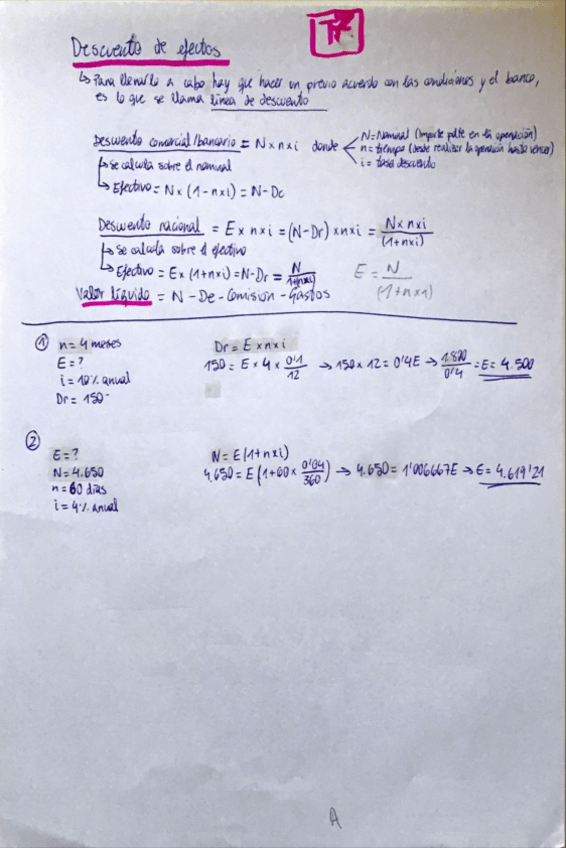 T7
Descuento de efectos
↳ Para llevarlo a cabo hay que hacer un previo acuerdo con las condiciones y el banco,
es lo que se llama línea de descuento
Descuento comercial/bancario = N x n x i donde
N = Nominal (importe pdte en la operación)
n = tiempo (desde realizar la operación hasta vencer)
i = tasa descuento
↳ Se calcula sobre el nominal
↳ Efectivo = N x (1 - n x i) = N - Dc
Descuento racional = E x n x i = (N - Dr) x n x i = N x n x i / (1 + n x i)
↳ Se calcula sobre el efectivo
↳ Efectivo = E x (1 + n x i) = N - Dr = N / 1 + (n x i)
E = N / (1 + n x i)
Valor líquido = N - De - Comisión - Gastos
① n = 4 meses
E = ?
i = 10% anual
Dr = 150
Dr = E x n x i
150 = E x 4 x 0'1/12 → 150 x 12 = 0'4E → 1.800/0'4 = E = 4.500
②
E = ?
N = 4.650
n = 60 días
i = 4% anual
N = E (1 + n x i)
4.650 = E (1 + 60 x 0'04/360) → 4.650 = 1'006667E → E = 4.619'21
A